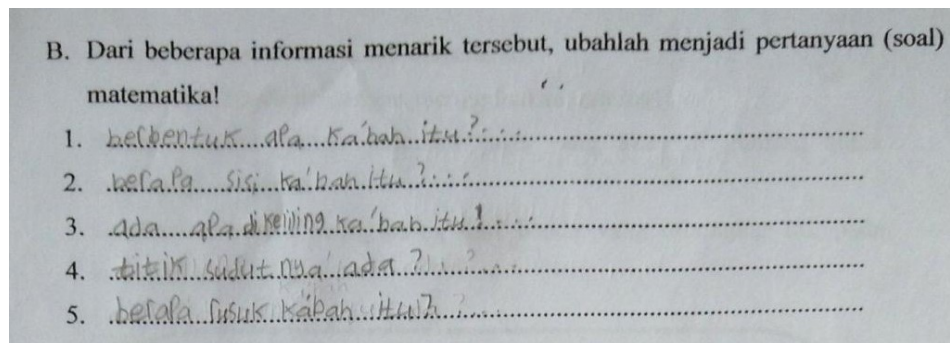 B. Dari beberapa informasi menarik tersebut, ubahlah menjadi pertanyaan (soal)
matematika!
1. berbentuk apa ka'bah itu?
2. berapa sisi ka'bah itu?
3. ada apa di keliling ka'bah itu?
4. titik sudut nya ada ?
5. berapa rusuk kabah itu?